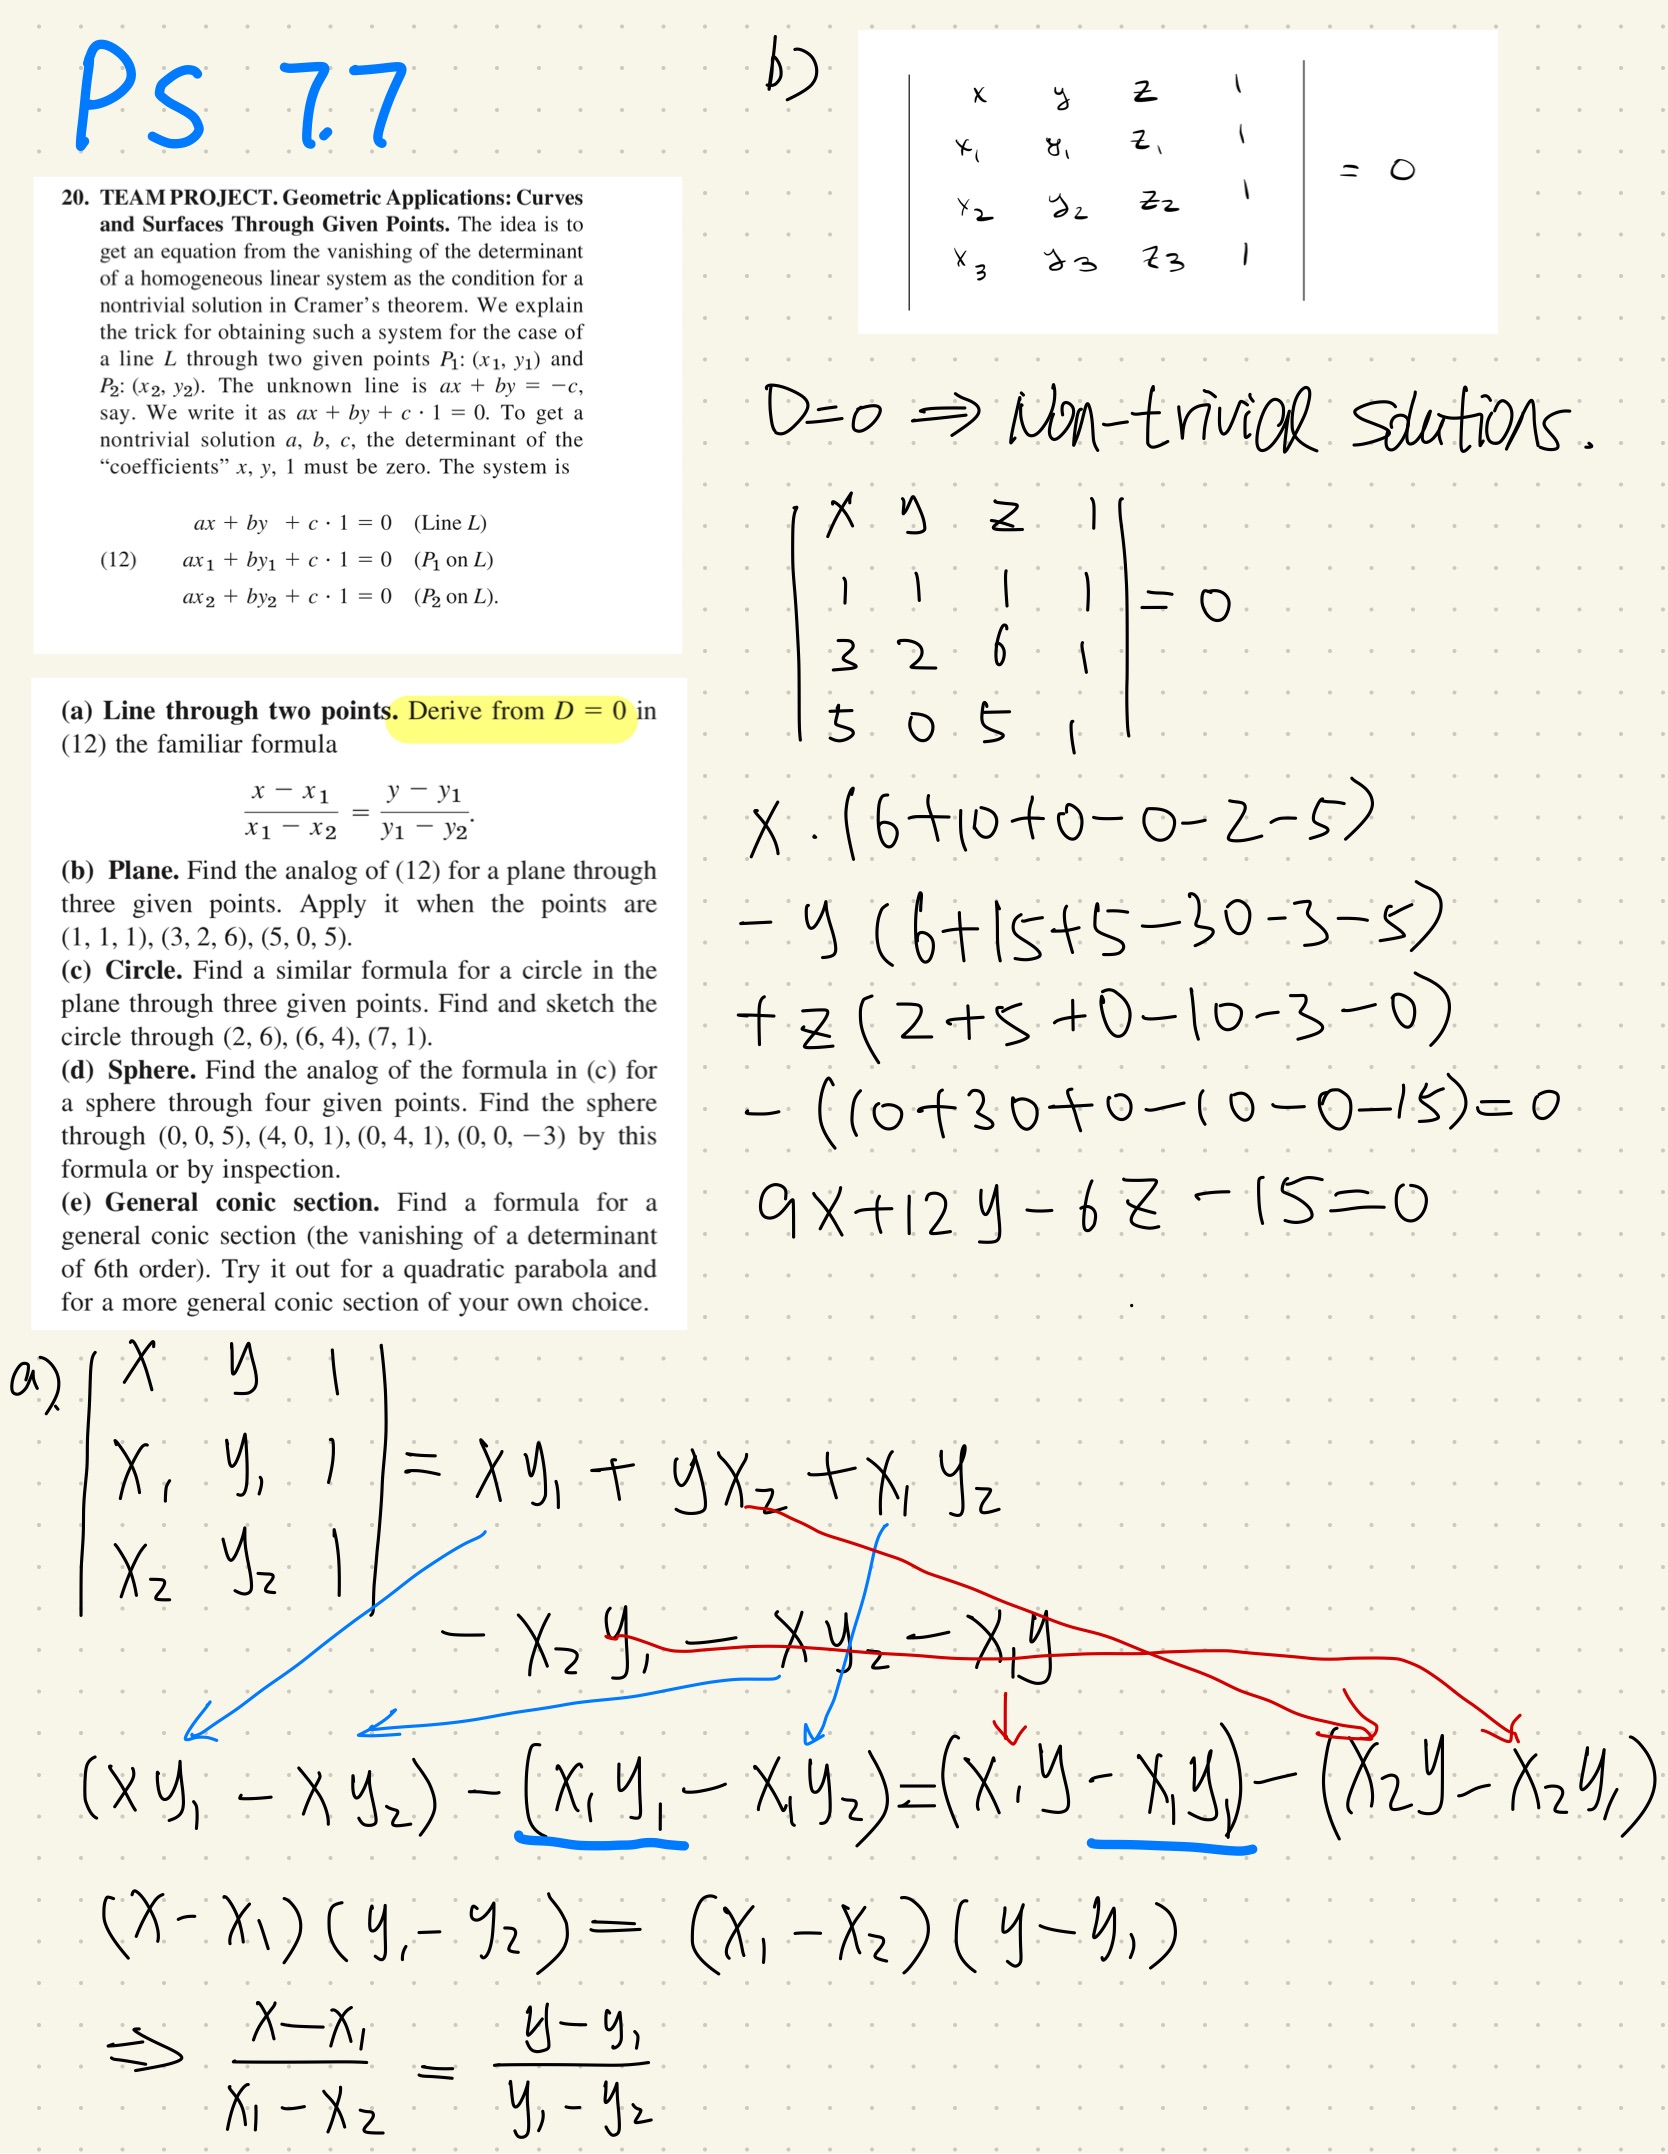 PS 7.7
20. TEAM PROJECT. Geometric Applications: Curves
and Surfaces Through Given Points. The idea is to
get an equation from the vanishing of the determinant
of a homogeneous linear system as the condition for a
nontrivial solution in Cramer's theorem. We explain
the trick for obtaining such a system for the case of
a line L through two given points P₁: (x₁, y₁) and
P₂: (x₂, y₂). The unknown line is ax + by = −c,
say. We write it as ax + by + c · 1 = 0. To get a
nontrivial solution a, b, c, the determinant of the
“coefficients” x, y, 1 must be zero. The system is
ax + by + c · 1 = 0 (Line L)
(12) ax₁ + by₁ + c · 1 = 0 (P₁ on L)
ax₂ + by₂ + c · 1 = 0 (P₂ on L).
(a) Line through two points. Derive from D = 0 in
(12) the familiar formula
x − x₁ y − y₁
=
x₁ − x₂ y₁ − y₂.
(b) Plane. Find the analog of (12) for a plane through
three given points. Apply it when the points are
(1, 1, 1), (3, 2, 6), (5, 0, 5).
(c) Circle. Find a similar formula for a circle in the
plane through three given points. Find and sketch the
circle through (2, 6), (6, 4), (7, 1).
(d) Sphere. Find the analog of the formula in (c) for
a sphere through four given points. Find the sphere
through (0, 0, 5), (4, 0, 1), (0, 4, 1), (0, 0, −3) by this
formula or by inspection.
(e) General conic section. Find a formula for a
general conic section (the vanishing of a determinant
of 6th order). Try it out for a quadratic parabola and
for a more general conic section of your own choice.
a).
x y 1
x₁ y₁ 1 = xy₁ + yx₂ + x₁y₂
x₂ y₂ 1
− x₂y₁ − xy₂ − x₁y
(xy₁ − xy₂) − (x₁y₁ − x₁y₂) = (x₁y − x₁y₁) − (x₂y − x₂y₁)
(x − x₁)(y₁ − y₂) = (x₁ − x₂)(y − y₁)
⇒ x − x₁ y − y₁
=
x₁ − x₂ y₁ − y₂
b)
x y z 1
x₁ y₁ z₁ 1
= 0
x₂ y₂ z₂ 1
x₃ y₃ z₃ 1
D=0 ⇒ Non-trivial solutions.
x y z 1
1 1 1 1 = 0
3 2 6 1
5 0 5 1
x · (6+10+0−0−2−5)
− y (6+15+5−30−3−5)
+ z (2+5+0−10−3−0)
− (10+30+0−10−0−15) = 0
9x+12y−6z−15=0